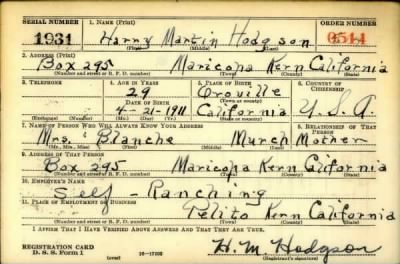 SERIAL NUMBER 1. NAME (Print) ORDER NUMBER
1931 Harry Martin Hodgson 0514
(First) (Middle) (Last)
2. ADDRESS (Print)
Box 295 Maricopa Kern California
(Number and street or R. F. D. number) (Town) (County) (State)
3. TELEPHONE 4. AGE IN YEARS 5. PLACE OF BIRTH 6. COUNTRY OF CITIZENSHIP
29 Oroville
DATE OF BIRTH (Town or county)
4-21-1911 California U.S.A.
(Exchange) (Number) (Mo.) (Day) (Yr.) (State or country)
7. NAME OF PERSON WHO WILL ALWAYS KNOW YOUR ADDRESS 8. RELATIONSHIP OF THAT PERSON
Mrs. Blanche Murch Mother
(Mr., Mrs., Miss) (First) (Middle) (Last)
9. ADDRESS OF THAT PERSON
Box 295 Maricopa Kern California
(Number and street or R. F. D. number) (Town) (County) (State)
10. EMPLOYER'S NAME
Self - Ranching
11. PLACE OF EMPLOYMENT OR BUSINESS
Pelito Kern California
(Number and street or R. F. D. number) (Town) (County) (State)
I AFFIRM THAT I HAVE VERIFIED ABOVE ANSWERS AND THAT THEY ARE TRUE.
H. M. Hodgson
REGISTRATION CARD
D. S. S. Form 1 (over) (Registrant's signature)